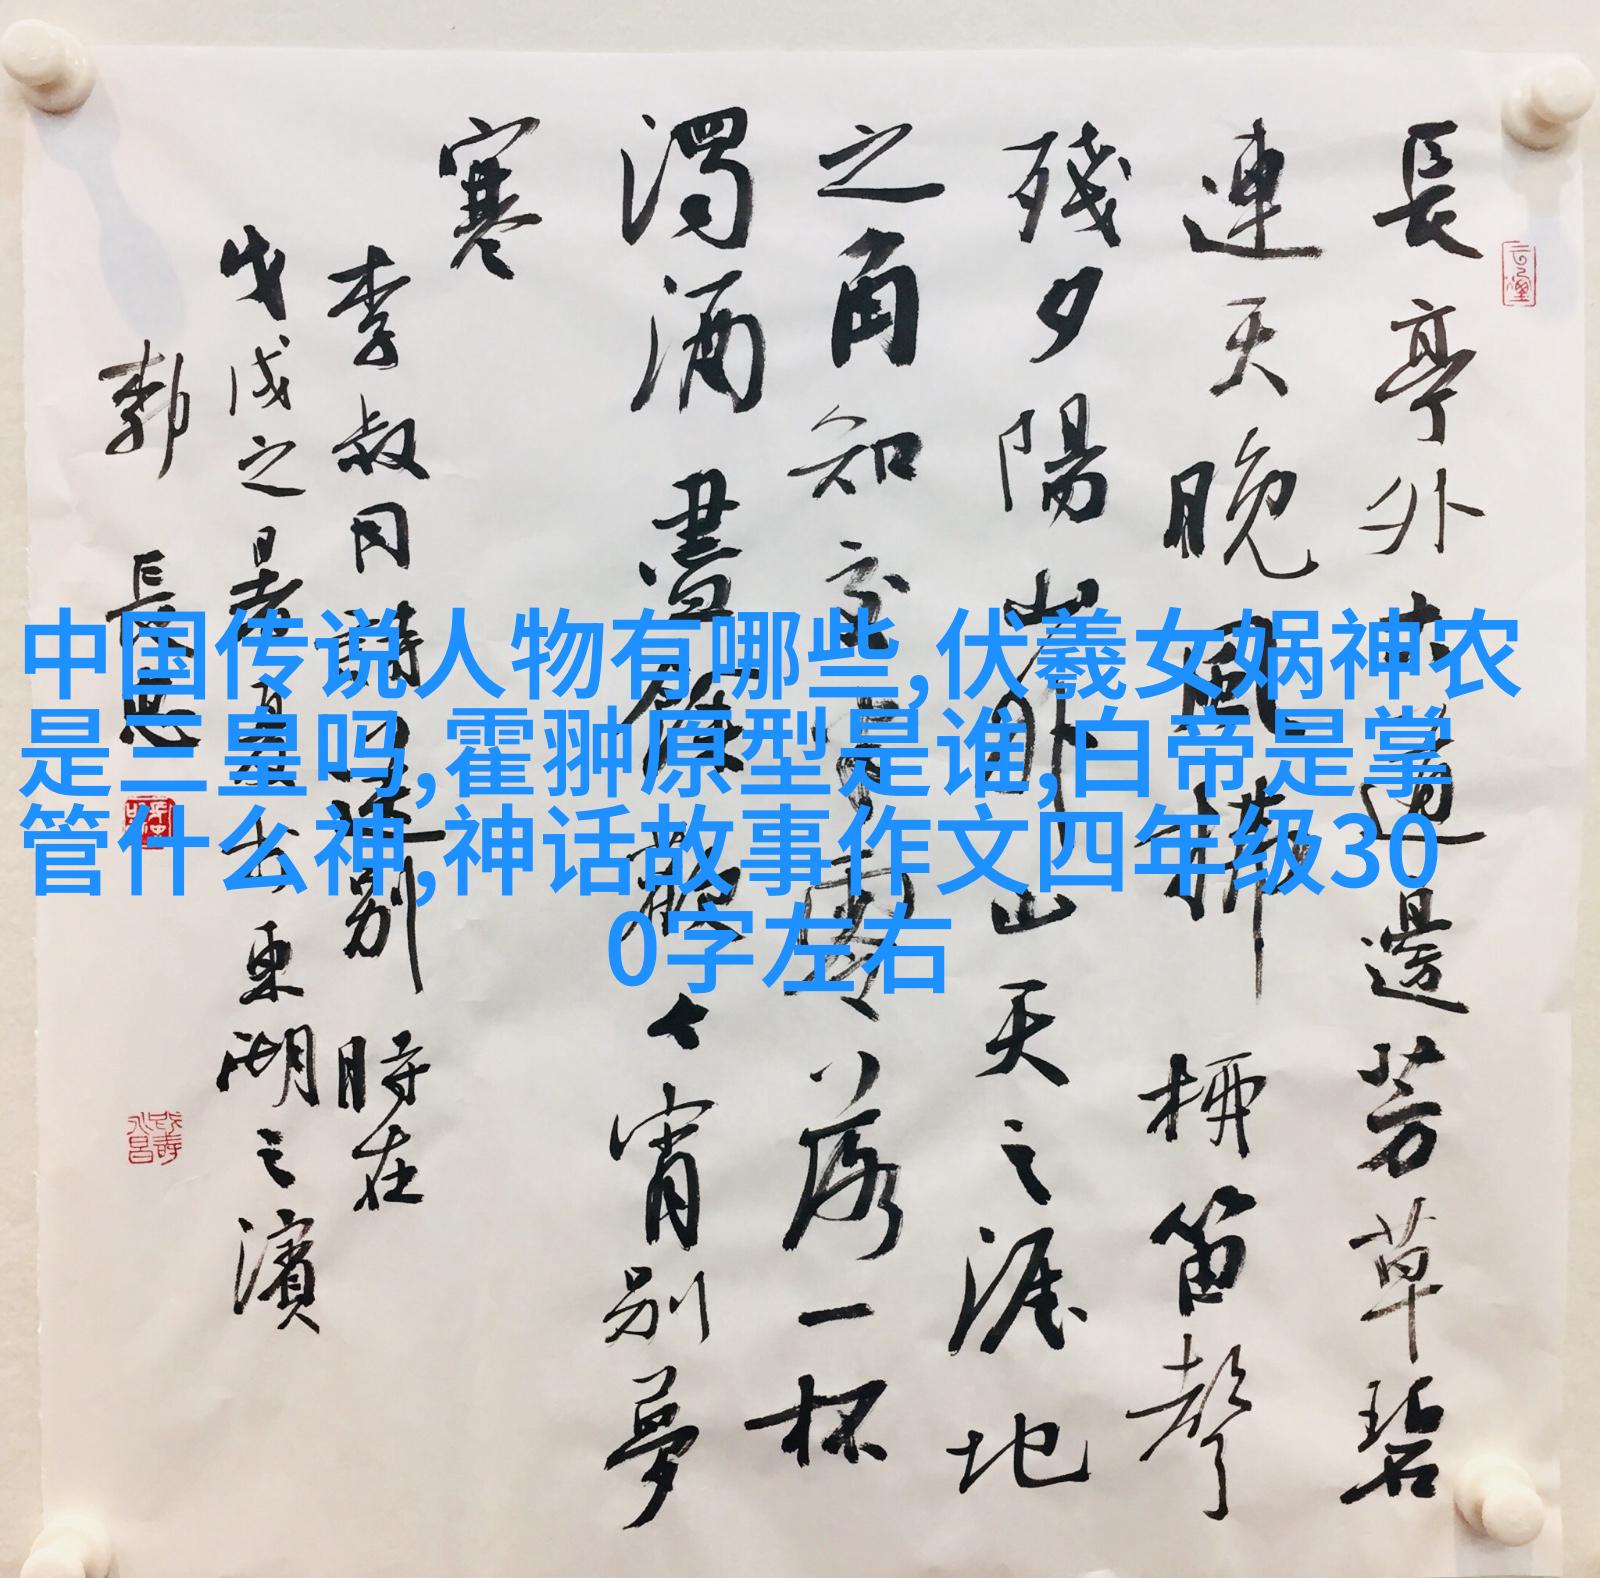 長亭外古道邊芳草碧
連天晚風拂柳笛聲
殘夕陽山外山天之涯地
之角知交半零落一杯
濁酒盡餘歡今宵別夢
寒
李叔同詩送別 時在
戊戌之暑夏於東湖之濱
郭長
中国传说人物有哪些,伏羲女娲神农
是三皇吗,霍翀原型是谁,白帝是掌
管什么神,神话故事作文四年级30
0字左右